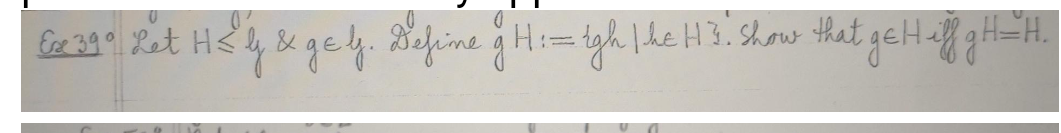 Ex 39° Let H ≤ G & g ∈ G. Define gH := {gh | h ∈ H}. Show that g ∈ H iff gH = H.